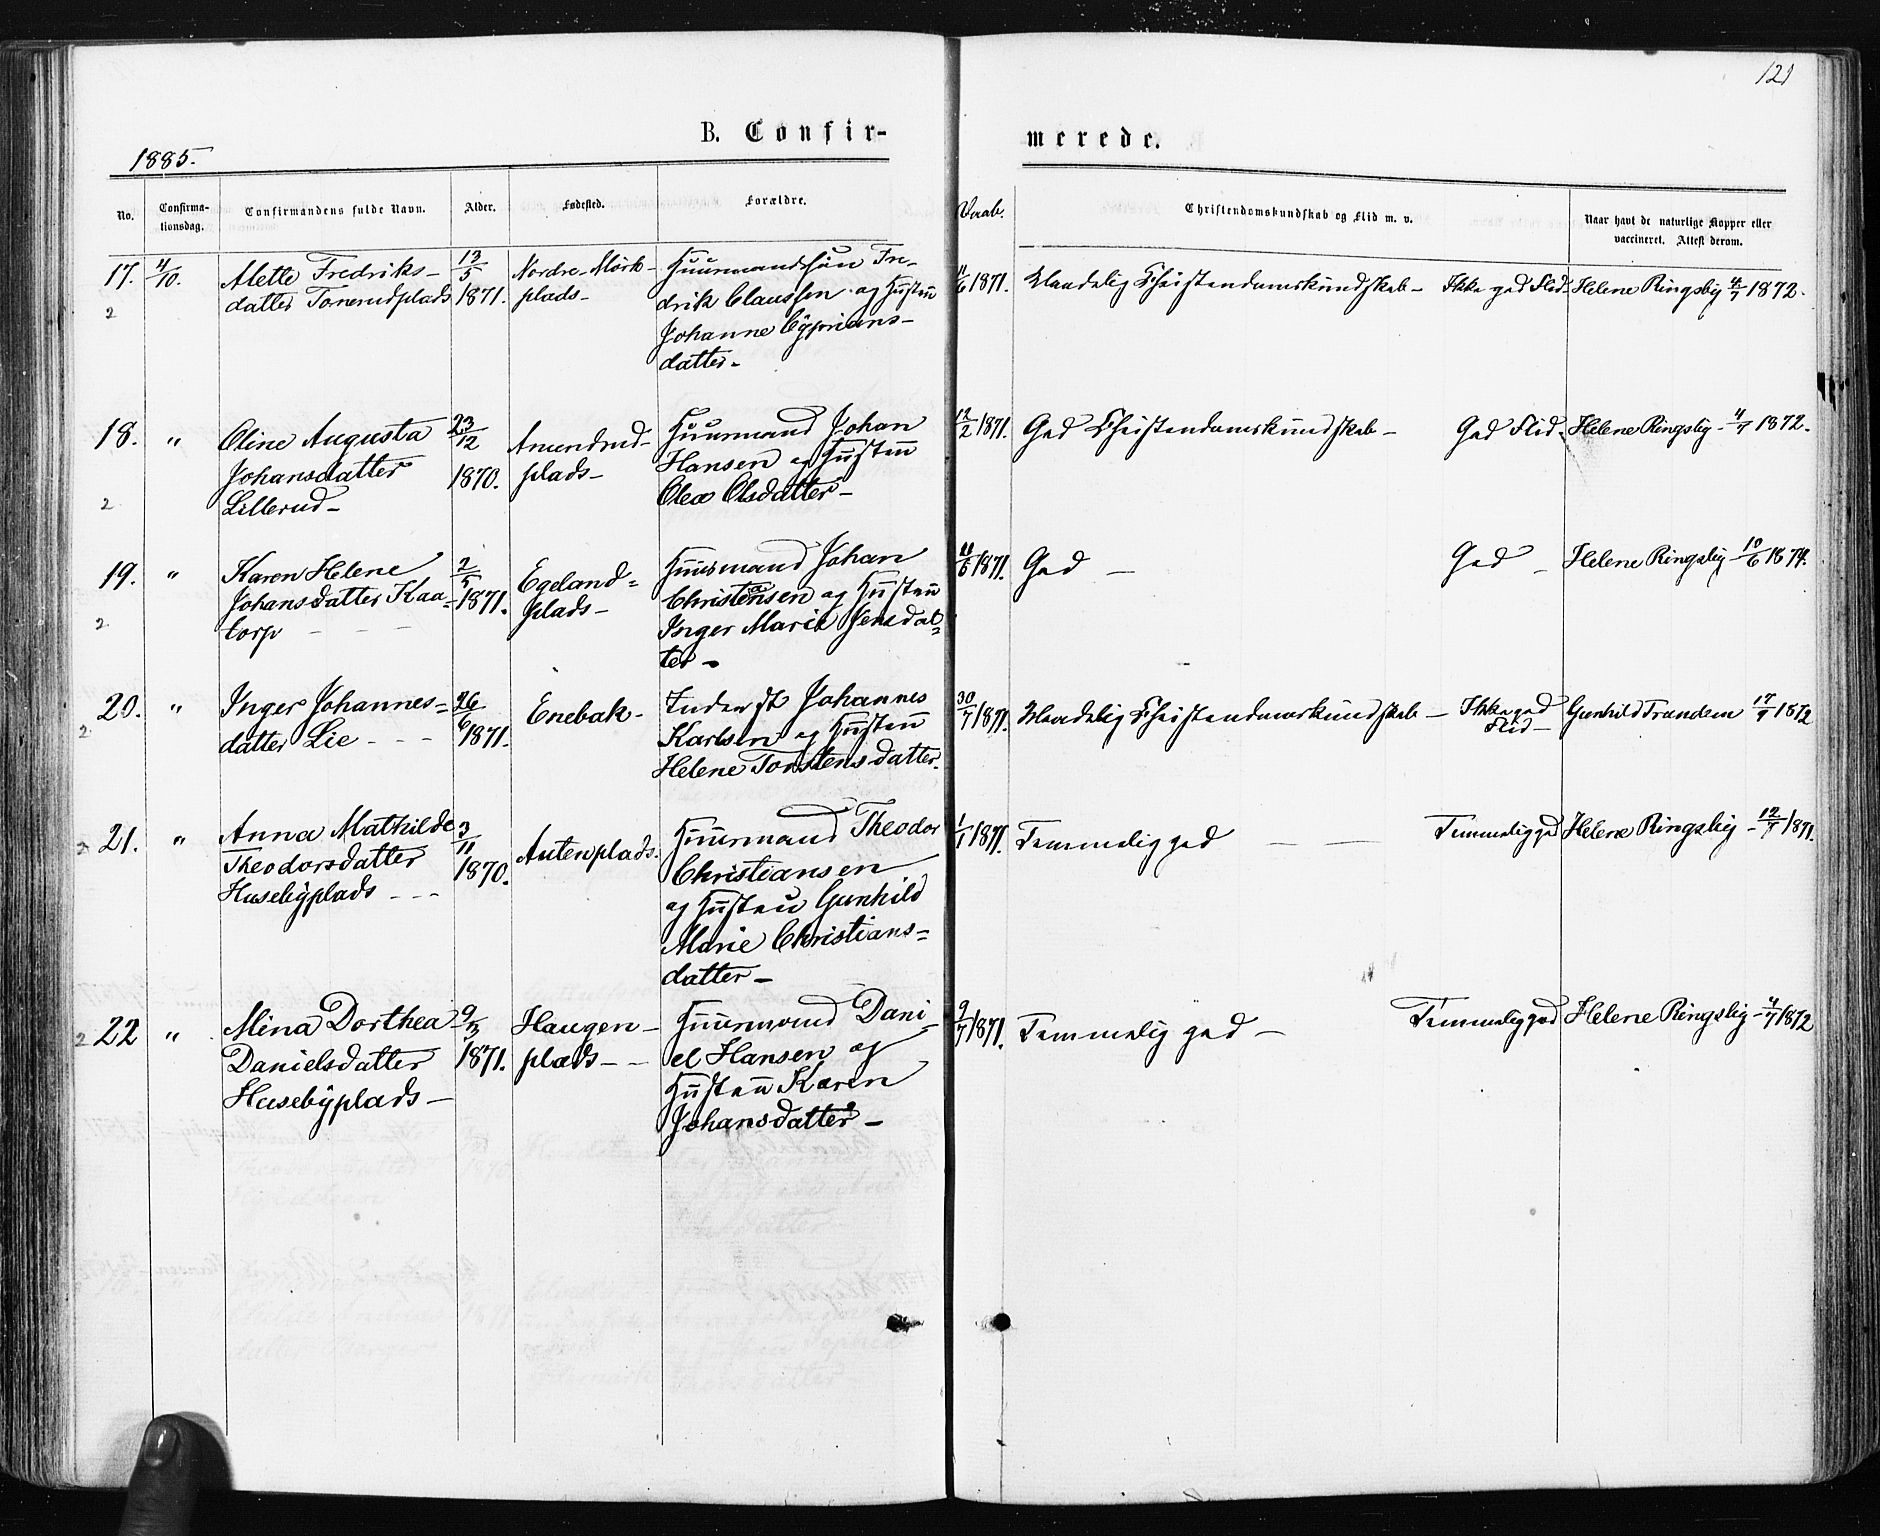 121
B. Confir-
merede.
1885.
No.
Confirma-
tionsdag.
Confirmandens fulde Navn.
Alder.
Fødested.
Forældre.
Vaab.
Christendomskundskab og Flid m. v.
Naar havt de naturlige Kopper eller
vaccineret. Attest derom.
17. 4/10.
Mette Fredriks-
datter Tonerudplads
12/5
1871.
Nordre-Mörk-
plads-
Huusmandssøn Fre-
drik Claussen og Hustru
Johanne Cyprians-
datter-
11/6 1871.
Maadelig Christendomskundskab-
Ikke god Flid-
Helene Ringsby 4/7 1872.
2
18. "
Oline Augusta
Johansdatter
Lillerud-
23/12
1870.
Amundrud-
plads-
Huusmand Johan
Hansen og Hustru
Olea Olsdatter-
12/2 1871.
God Christendomskundskab-
God Flid-
Helene Ringsby- 4/7 1872.
2
19. "
Karen Helene
Johansdatter Kaa-
torp - - -
2/5
1871.
Egeland=
plads-
Huusmand Johan
Christensen og Hustru
Inger Marie Jensdat=
ter-
11/6 1871.
God -
God -
Helene Ringsby- 10/6 1874.
2
20. "
Inger Johannes=
datter Lie - - -
26/6
1871.
Enebak-
Inderst Johannes
Karlsen og Hustru
Helene Torstensdatter.
30/7 1871.
Maadelig Christendomskundskab-
Ikke god
Flid-
Gunhild Trandem 17/9 1872
2
21. "
Anna Mathilde
Theodorsdatter
Husebyplads - - -
3/11
1870.
Autenplads.
Huusmand Theodor
Christiansen
og Hustru Gunhild
Marie Christians=
datter-
1/1 1871.
Temmelig god - -
Temmelig god
Helene Ringsby- 12/7 1871.
2
22 "
Mina Dorthea
Danielsdatter
Husebyplads-
9/3
1871.
Haugen-
plads- -
Huusmand Dani-
el Hansen og
Hustru Karen
Johansdatter-
9/7 1871.
Temmelig god-
Temmelig god
Helene Ringsby- 4/7 1872
2